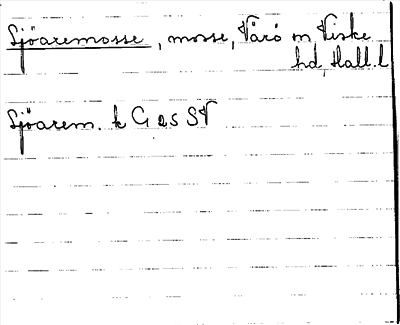 Sjöaremosse, mosse, Värö sn Viske
hd, Hall. l
Sjöarem. k G 25 SV